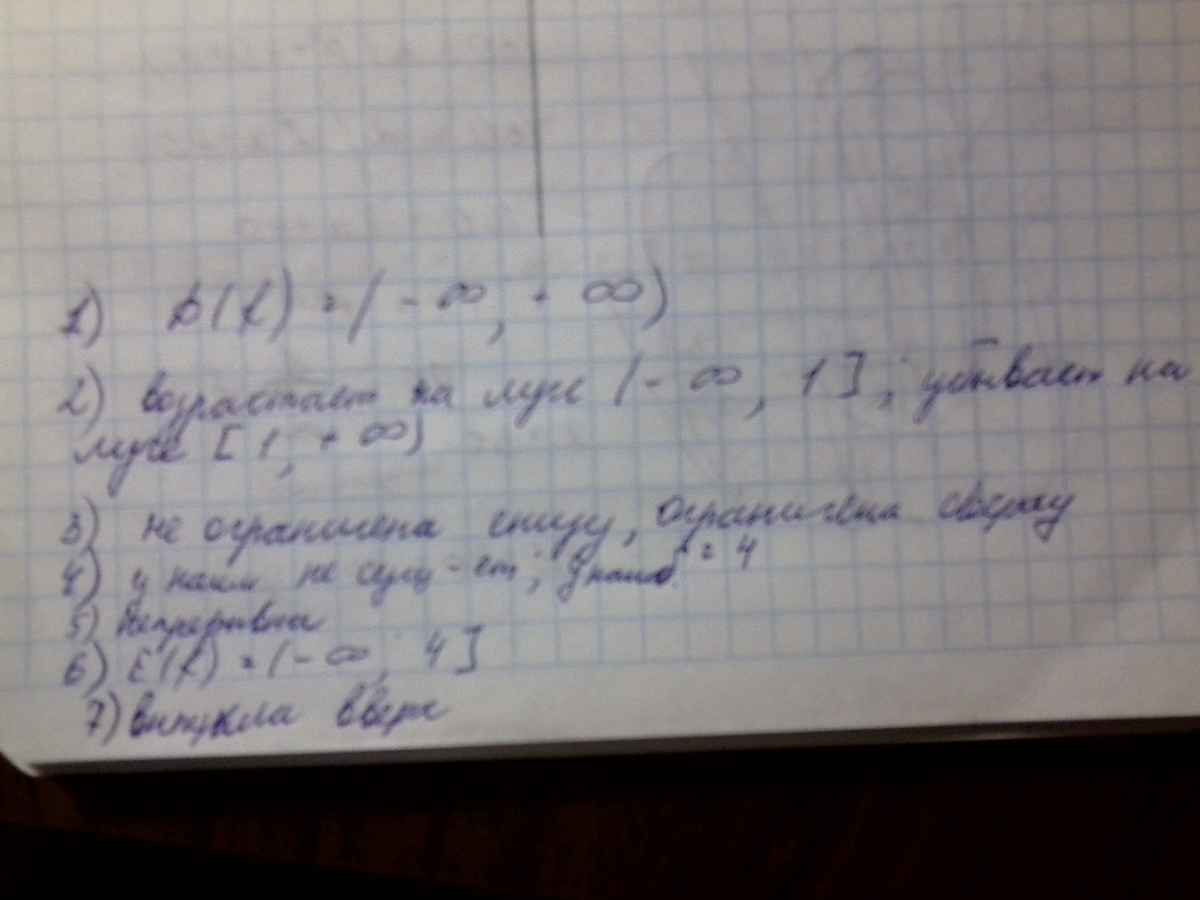 1) D(f) = (-∞, +∞)
2) возрастает на луче (-∞, 1]; убывает на
луче [1, +∞)
3) не ограничена снизу, ограничена сверху
4) y наим не сущ-ет; y наиб. = 4
5) непрерывна
6) E(f) = (-∞; 4]
7) выпукла вверх